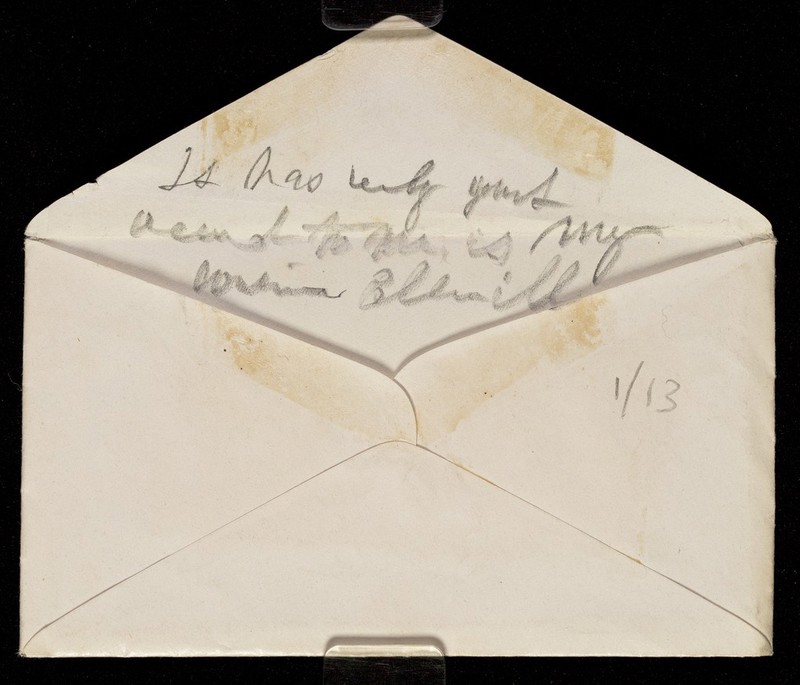 It has only just
occurred to me. is my
cousin
1/13